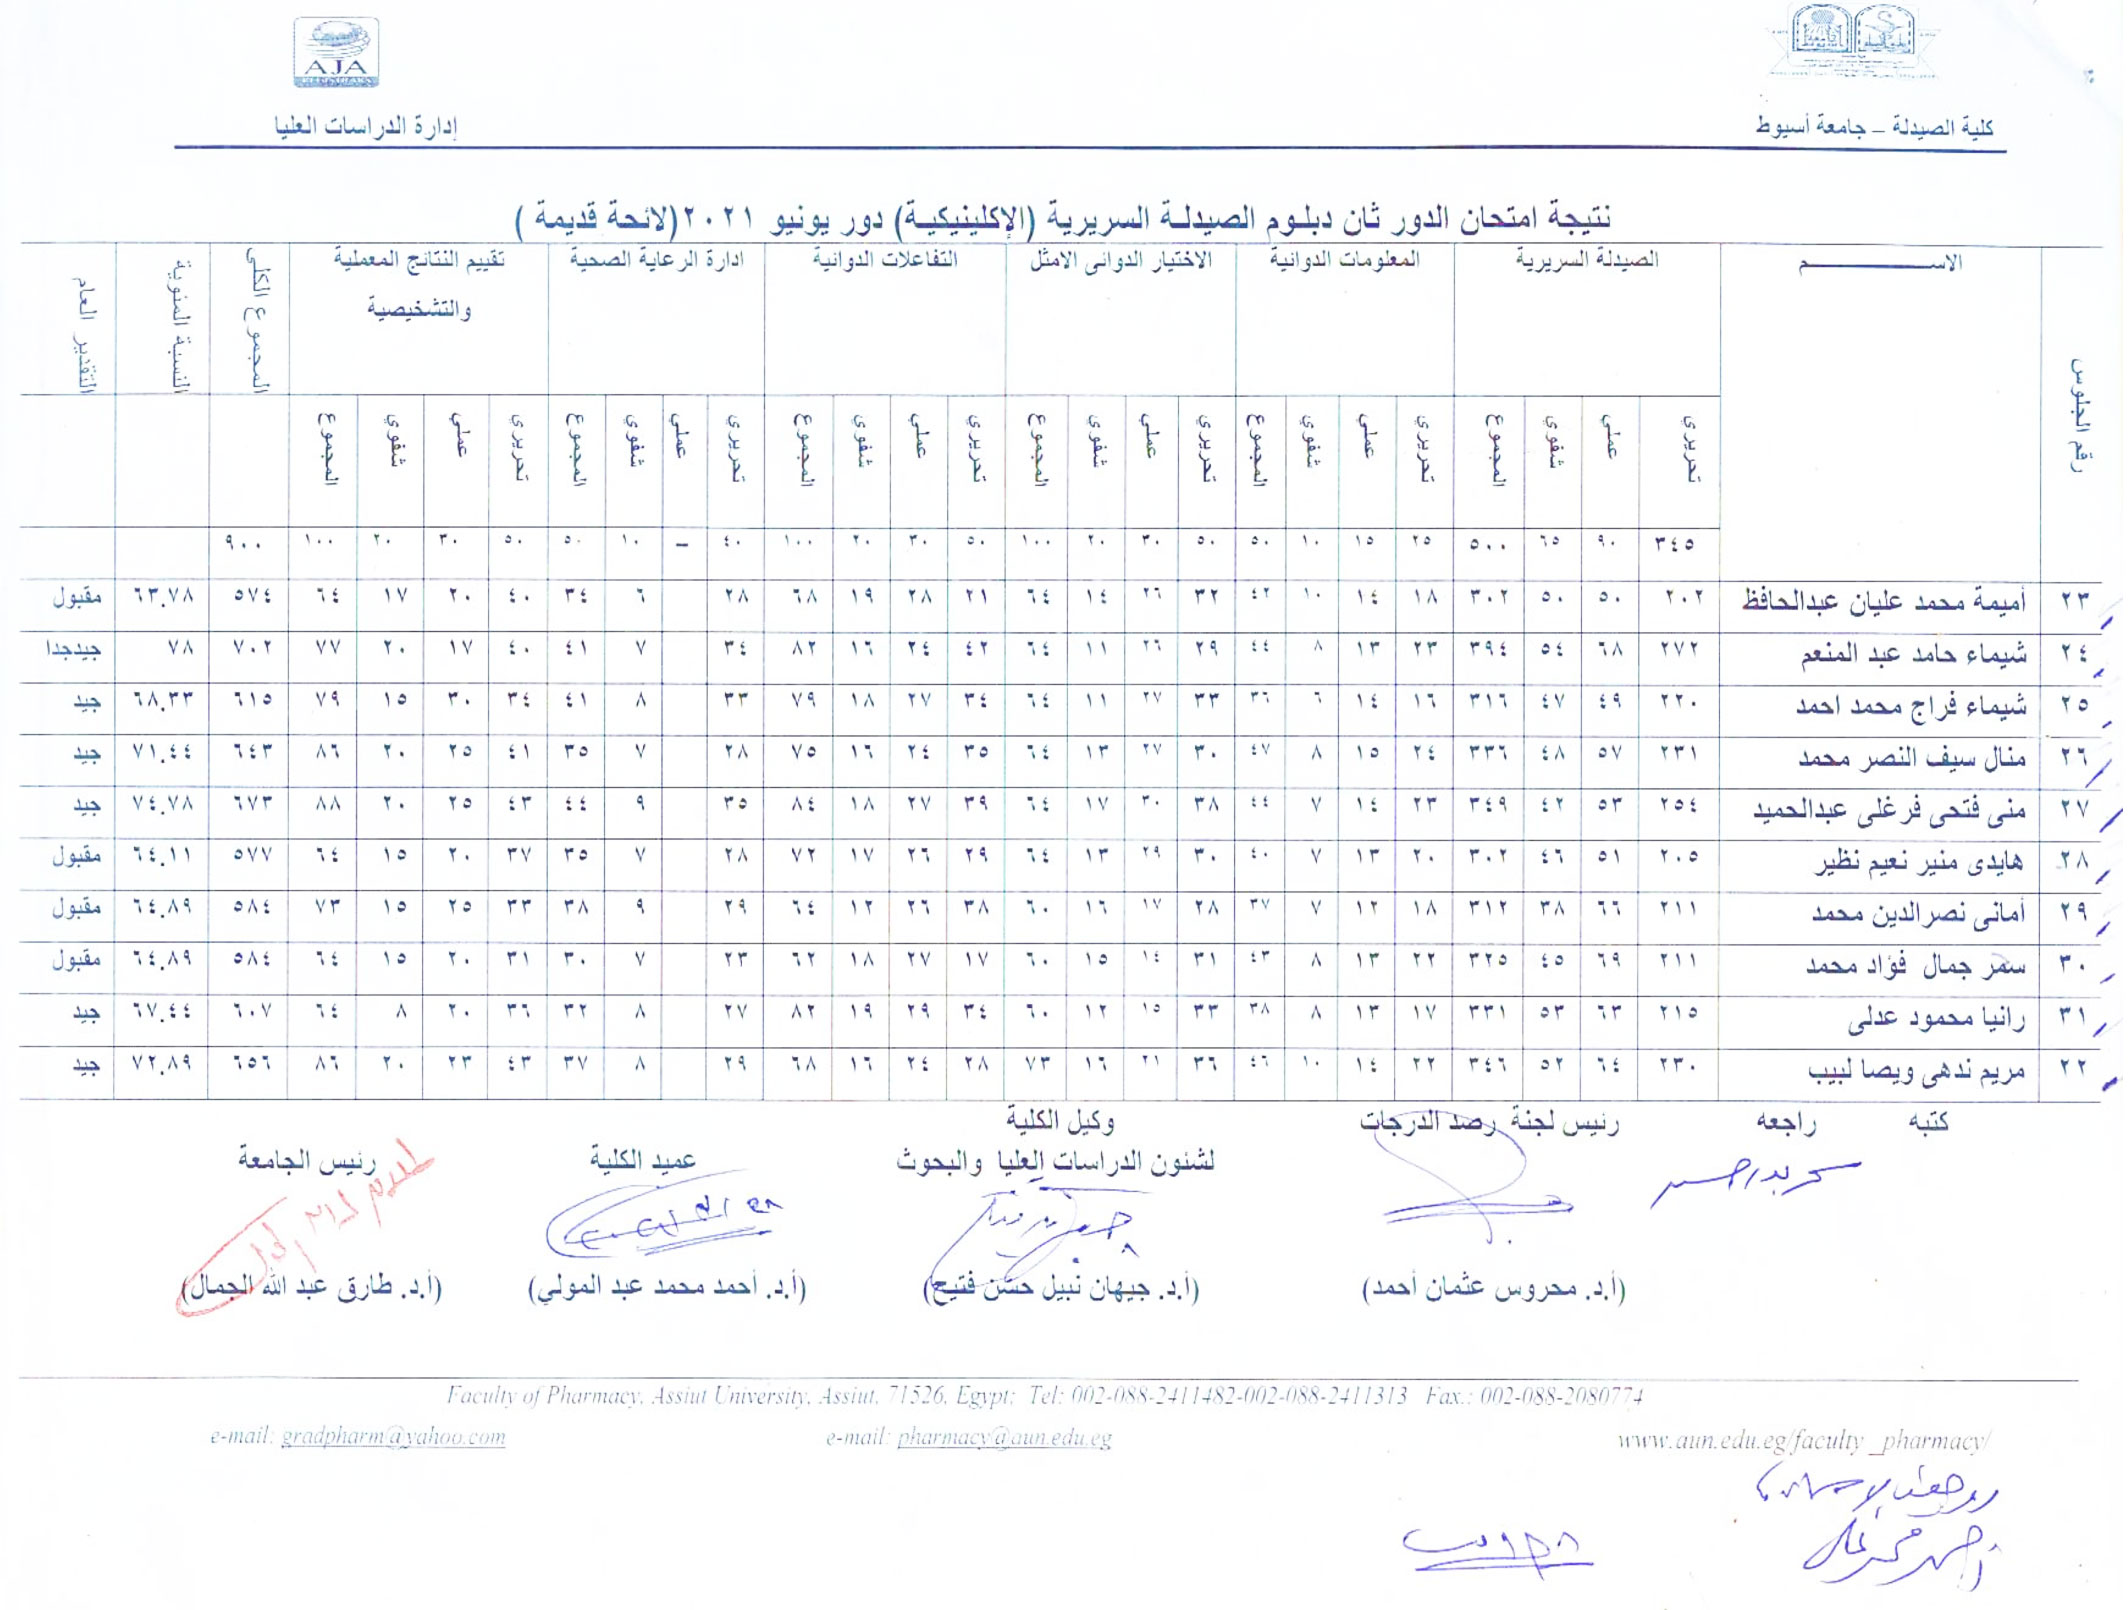 AJA
كلية الصيدلة – جامعة أسيوط
إدارة الدراسات العليا
نتيجة امتحان الدور ثان دبلوم الصيدلة السريرية (الإكلينيكية) دور يونيو ٢٠٢١(لائحة قديمة )
رقم الجلوس الاســــــــم الصيدلة السريرية المعلومات الدوائية الاختيار الدوائى الامثل التفاعلات الدوائية ادارة الرعاية الصحية تقييم النتائج المعملية والتشخيصية المجموع الكلى النسبة المئوية التقدير العام
تحريرى عملى شفوي المجموع تحريرى عملى شفوي المجموع تحريرى عملى شفوي المجموع تحريرى عملى شفوي المجموع تحريرى عملى شفوي المجموع تحريرى عملى شفوي المجموع
٣٤٥ ٩٠ ٦٥ ٥٠٠ ٢٥ ١٥ ١٠ ٥٠ ٥٠ ٣٠ ٢٠ ١٠٠ ٥٠ ٣٠ ٢٠ ١٠٠ ٤٠ – ١٠ ٥٠ ٥٠ ٣٠ ٢٠ ١٠٠ ٩٠٠
٢٣ أميمة محمد عليان عبدالحافظ ٢٠٢ ٥٠ ٥٠ ٣٠٢ ١٨ ١٤ ١٠ ٤٢ ٣٢ ٢٦ ١٤ ٦٤ ٢١ ٢٨ ١٩ ٦٨ ٢٨ ٦ ٣٤ ٤٠ ٢٠ ١٧ ٦٤ ٥٧٤ ٦٣.٧٨ مقبول
٢٤ شيماء حامد عبد المنعم ٢٧٢ ٦٨ ٥٤ ٣٩٤ ٢٣ ١٣ ٨ ٤٤ ٢٩ ٢٦ ١١ ٦٤ ٤٢ ٢٤ ١٦ ٨٢ ٣٤ ٧ ٤١ ٤٠ ١٧ ٢٠ ٧٧ ٧٠٢ ٧٨ جيدجدا
٢٥ شيماء فراج محمد احمد ٢٢٠ ٤٩ ٤٧ ٣١٦ ١٦ ١٤ ٦ ٣٦ ٣٣ ٢٧ ١١ ٦٤ ٣٤ ٢٧ ١٨ ٧٩ ٣٣ ٨ ٤١ ٣٤ ٣٠ ١٥ ٧٩ ٦١٥ ٦٨.٣٣ جيد
٢٦ منال سيف النصر محمد ٢٣١ ٥٧ ٤٨ ٣٣٦ ٢٤ ١٥ ٨ ٤٧ ٣٠ ٢٧ ١٣ ٦٤ ٣٥ ٢٤ ١٦ ٧٥ ٢٨ ٧ ٣٥ ٤١ ٢٥ ٢٠ ٨٦ ٦٤٣ ٧١.٤٤ جيد
٢٧ منى فتحى فرغلى عبدالحميد ٢٥٤ ٥٣ ٤٢ ٣٤٩ ٢٣ ١٤ ٧ ٤٤ ٣٨ ٣٠ ١٧ ٦٤ ٣٩ ٢٧ ١٨ ٨٤ ٣٥ ٩ ٤٤ ٤٣ ٢٥ ٢٠ ٨٨ ٦٧٣ ٧٤.٧٨ جيد
٢٨ هايدى منير نعيم نظير ٢٠٥ ٥١ ٤٦ ٣٠٢ ٢٠ ١٣ ٧ ٤٠ ٣٠ ٢٩ ١٣ ٦٤ ٢٩ ٢٦ ١٧ ٧٢ ٢٨ ٧ ٣٥ ٣٧ ٢٠ ١٥ ٦٤ ٥٧٧ ٦٤.١١ مقبول
٢٩ أمانى نصرالدين محمد ٢١١ ٦٦ ٣٨ ٣١٢ ١٨ ١٢ ٧ ٣٧ ٢٨ ١٧ ١٦ ٦٠ ٣٨ ٢٦ ١٢ ٦٤ ٢٩ ٩ ٣٨ ٣٣ ٢٥ ١٥ ٧٣ ٥٨٤ ٦٤.٨٩ مقبول
٣٠ سمر جمال فؤاد محمد ٢١١ ٦٩ ٤٥ ٣٢٥ ٢٢ ١٣ ٨ ٤٣ ٣١ ١٤ ١٥ ٦٠ ١٧ ٢٧ ١٨ ٦٢ ٢٣ ٧ ٣٠ ٣١ ٢٠ ١٥ ٦٤ ٥٨٤ ٦٤.٨٩ مقبول
٣١ رانيا محمود عدلى ٢١٥ ٦٣ ٥٣ ٣٣١ ١٧ ١٣ ٨ ٣٨ ٣٣ ١٥ ١٢ ٦٠ ٣٤ ٢٩ ١٩ ٨٢ ٢٧ ٨ ٣٢ ٣٦ ٢٠ ٨ ٦٤ ٦٠٧ ٦٧.٤٤ جيد
٢٢ مريم ندهى ويصا لبيب ٢٣٠ ٦٤ ٥٢ ٣٤٦ ٢٢ ١٤ ١٠ ٤٦ ٣٦ ٢١ ١٦ ٧٣ ٢٨ ٢٤ ١٦ ٦٨ ٢٩ ٨ ٣٧ ٤٣ ٢٣ ٢٠ ٨٦ ٦٥٦ ٧٢.٨٩ جيد
كتبه راجعه رئيس لجنة رصد الدرجات وكيل الكلية
لشئون الدراسات العليا والبحوث عميد الكلية رئيس الجامعة
(أ.د. محروس عثمان أحمد) (أ.د. جيهان نبيل حسن فتيح) (أ.د. أحمد محمد عبد المولي) (أ.د. طارق عبد الله الجمال)
Faculty of Pharmacy, Assiut University, Assiut, 71526, Egypt; Tel: 002-088-2411482-002-088-2411313 Fax.: 002-088-2080774
e-mail: gradpharm@yahoo.com e-mail: pharmacy@aun.edu.eg www.aun.edu.eg/faculty_pharmacy/